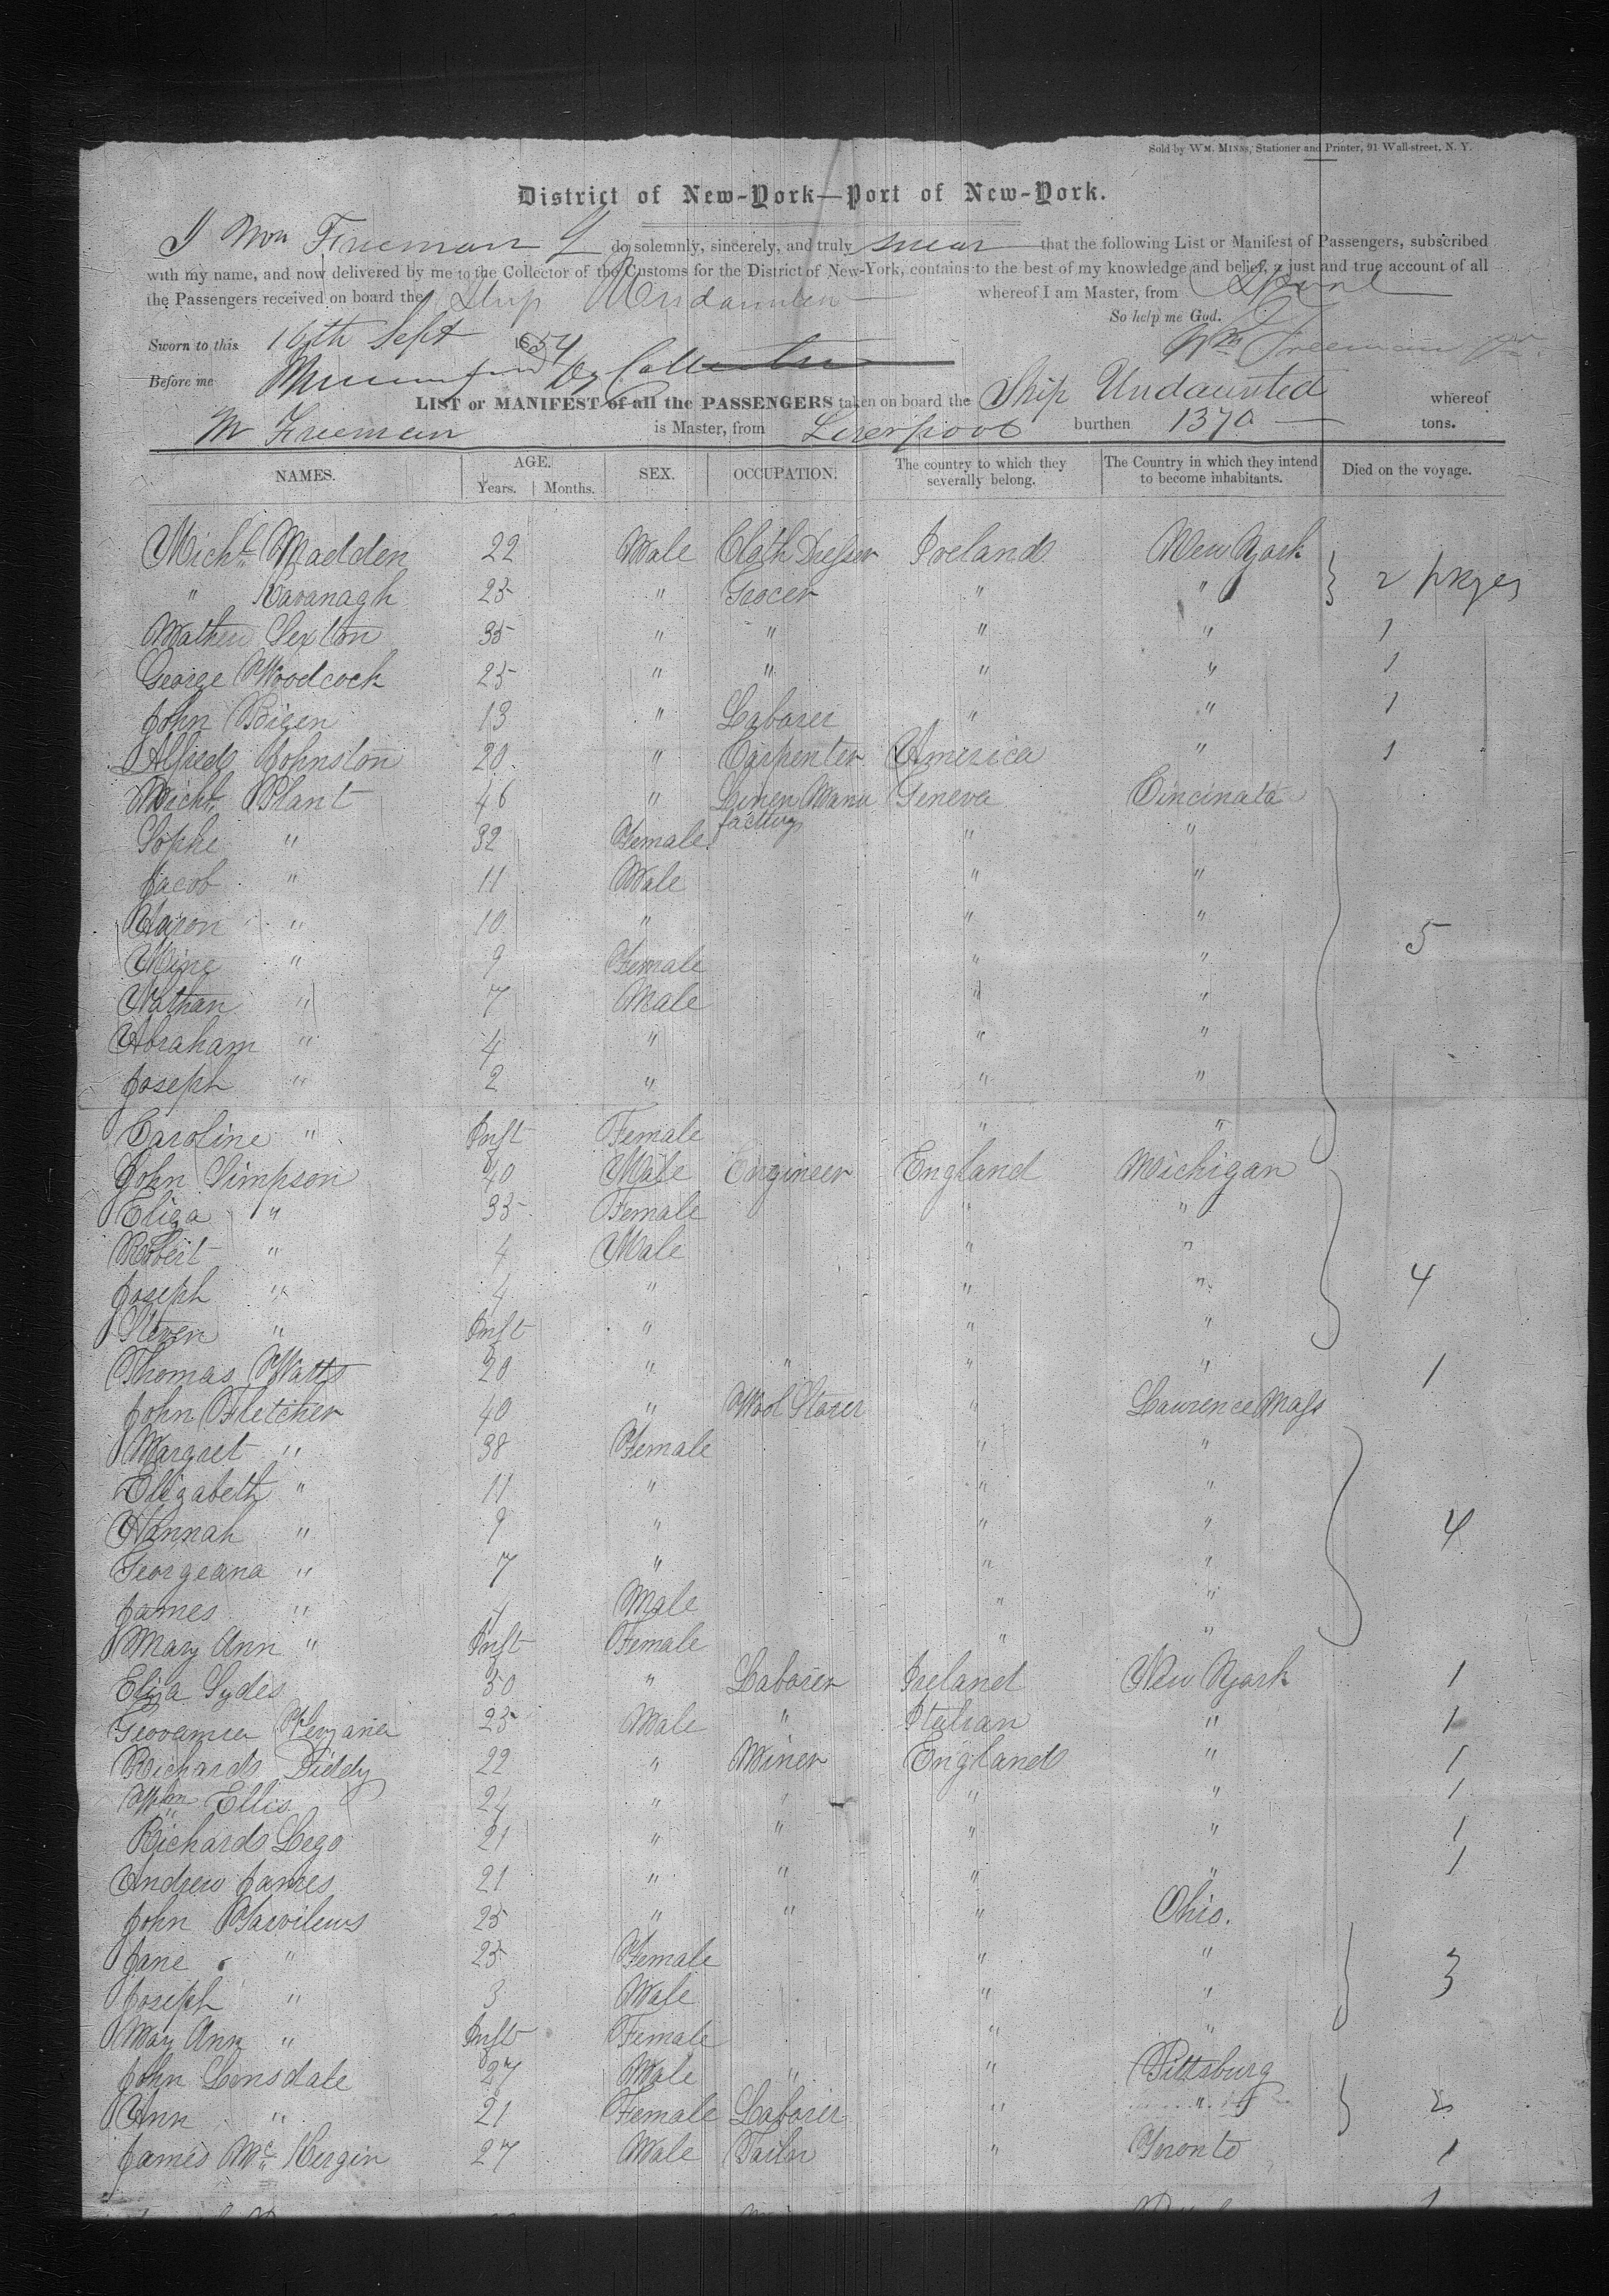 Sold by WM. MINNS, Stationer and Printer, 91 Wall-street, N. Y.
District of New-York—Port of New-York.
I Wm Freeman do solemnly, sincerely, and truly swear that the following List or Manifest of Passengers, subscribed
with my name, and now delivered by me to the Collector of the Customs for the District of New-York, contains to the best of my knowledge and belief, a just and true account of all
the Passengers received on board the Ship Undaunted whereof I am Master, from
So help me God.
Sworn to this 16th Sept 1854 Wm Freeman
Before me
LIST or MANIFEST of all the PASSENGERS taken on board the Ship Undaunted whereof
W Freeman is Master, from Liverpool burthen 1370 tons.
NAMES. AGE. SEX. OCCUPATION. The country to which they severally belong. The Country in which they intend to become inhabitants. Died on the voyage.
Years. Months.
Michl Madden 22 Male Cloth Dresser Ireland New York
" Kavanagh 25 " Grocer " " 2 pkges
Mathew Sexton 35 " " " " 1
George Woodcock 25 " " " " 1
John Bigen 13 " Laborer " " 1
Alfred Johnston 20 " Carpenter America " 1
Michl Plant 46 " Linen Manu Geneva Cincinata
factury
Sophe " 32 Female " "
Jacob " 11 Male " "
Aaron " 10 " " "
Mine " 9 Female " " 5
Nathan " 7 Male " "
Abraham " 4 " " "
Joseph " 2 " " "
Caroline " Inft Female " "
John Simpson 40 Male Engineer England Michigan
Eliza " 35 Female " "
Robert " 4 Male " "
Joseph " 4 " " " 4
Steven " Inft " " "
Thomas Watts 20 " " " " 1
John Fletcher 40 " Wool Storer " Lawrence Mass
Margret " 38 Female " "
Elizabeth " 11 " " "
Hannah " 9 " " " 4
Georgeana " 7 " " "
James " 4 Male " "
Mary Ann " Inft Female " "
Eliza Sydes 30 " Laborer Ireland New York 1
25 Male " Italian " 1
Richard Diddy 22 " Miner England " 1
Wm Ellis 24 " " " " 1
Richard Lego 21 " " " " 1
Andrew James 21 " " " " 1
John 25 " " " Ohio.
Jane " 25 Female " "
Joseph " 3 Male " " 3
May Ann " Inft Female " "
John Lonsdale 27 Male " " Pittsburg
Ann " 21 Female Laborer " " 2
James Mc Kergin 27 Male Tailor " Toronto 1